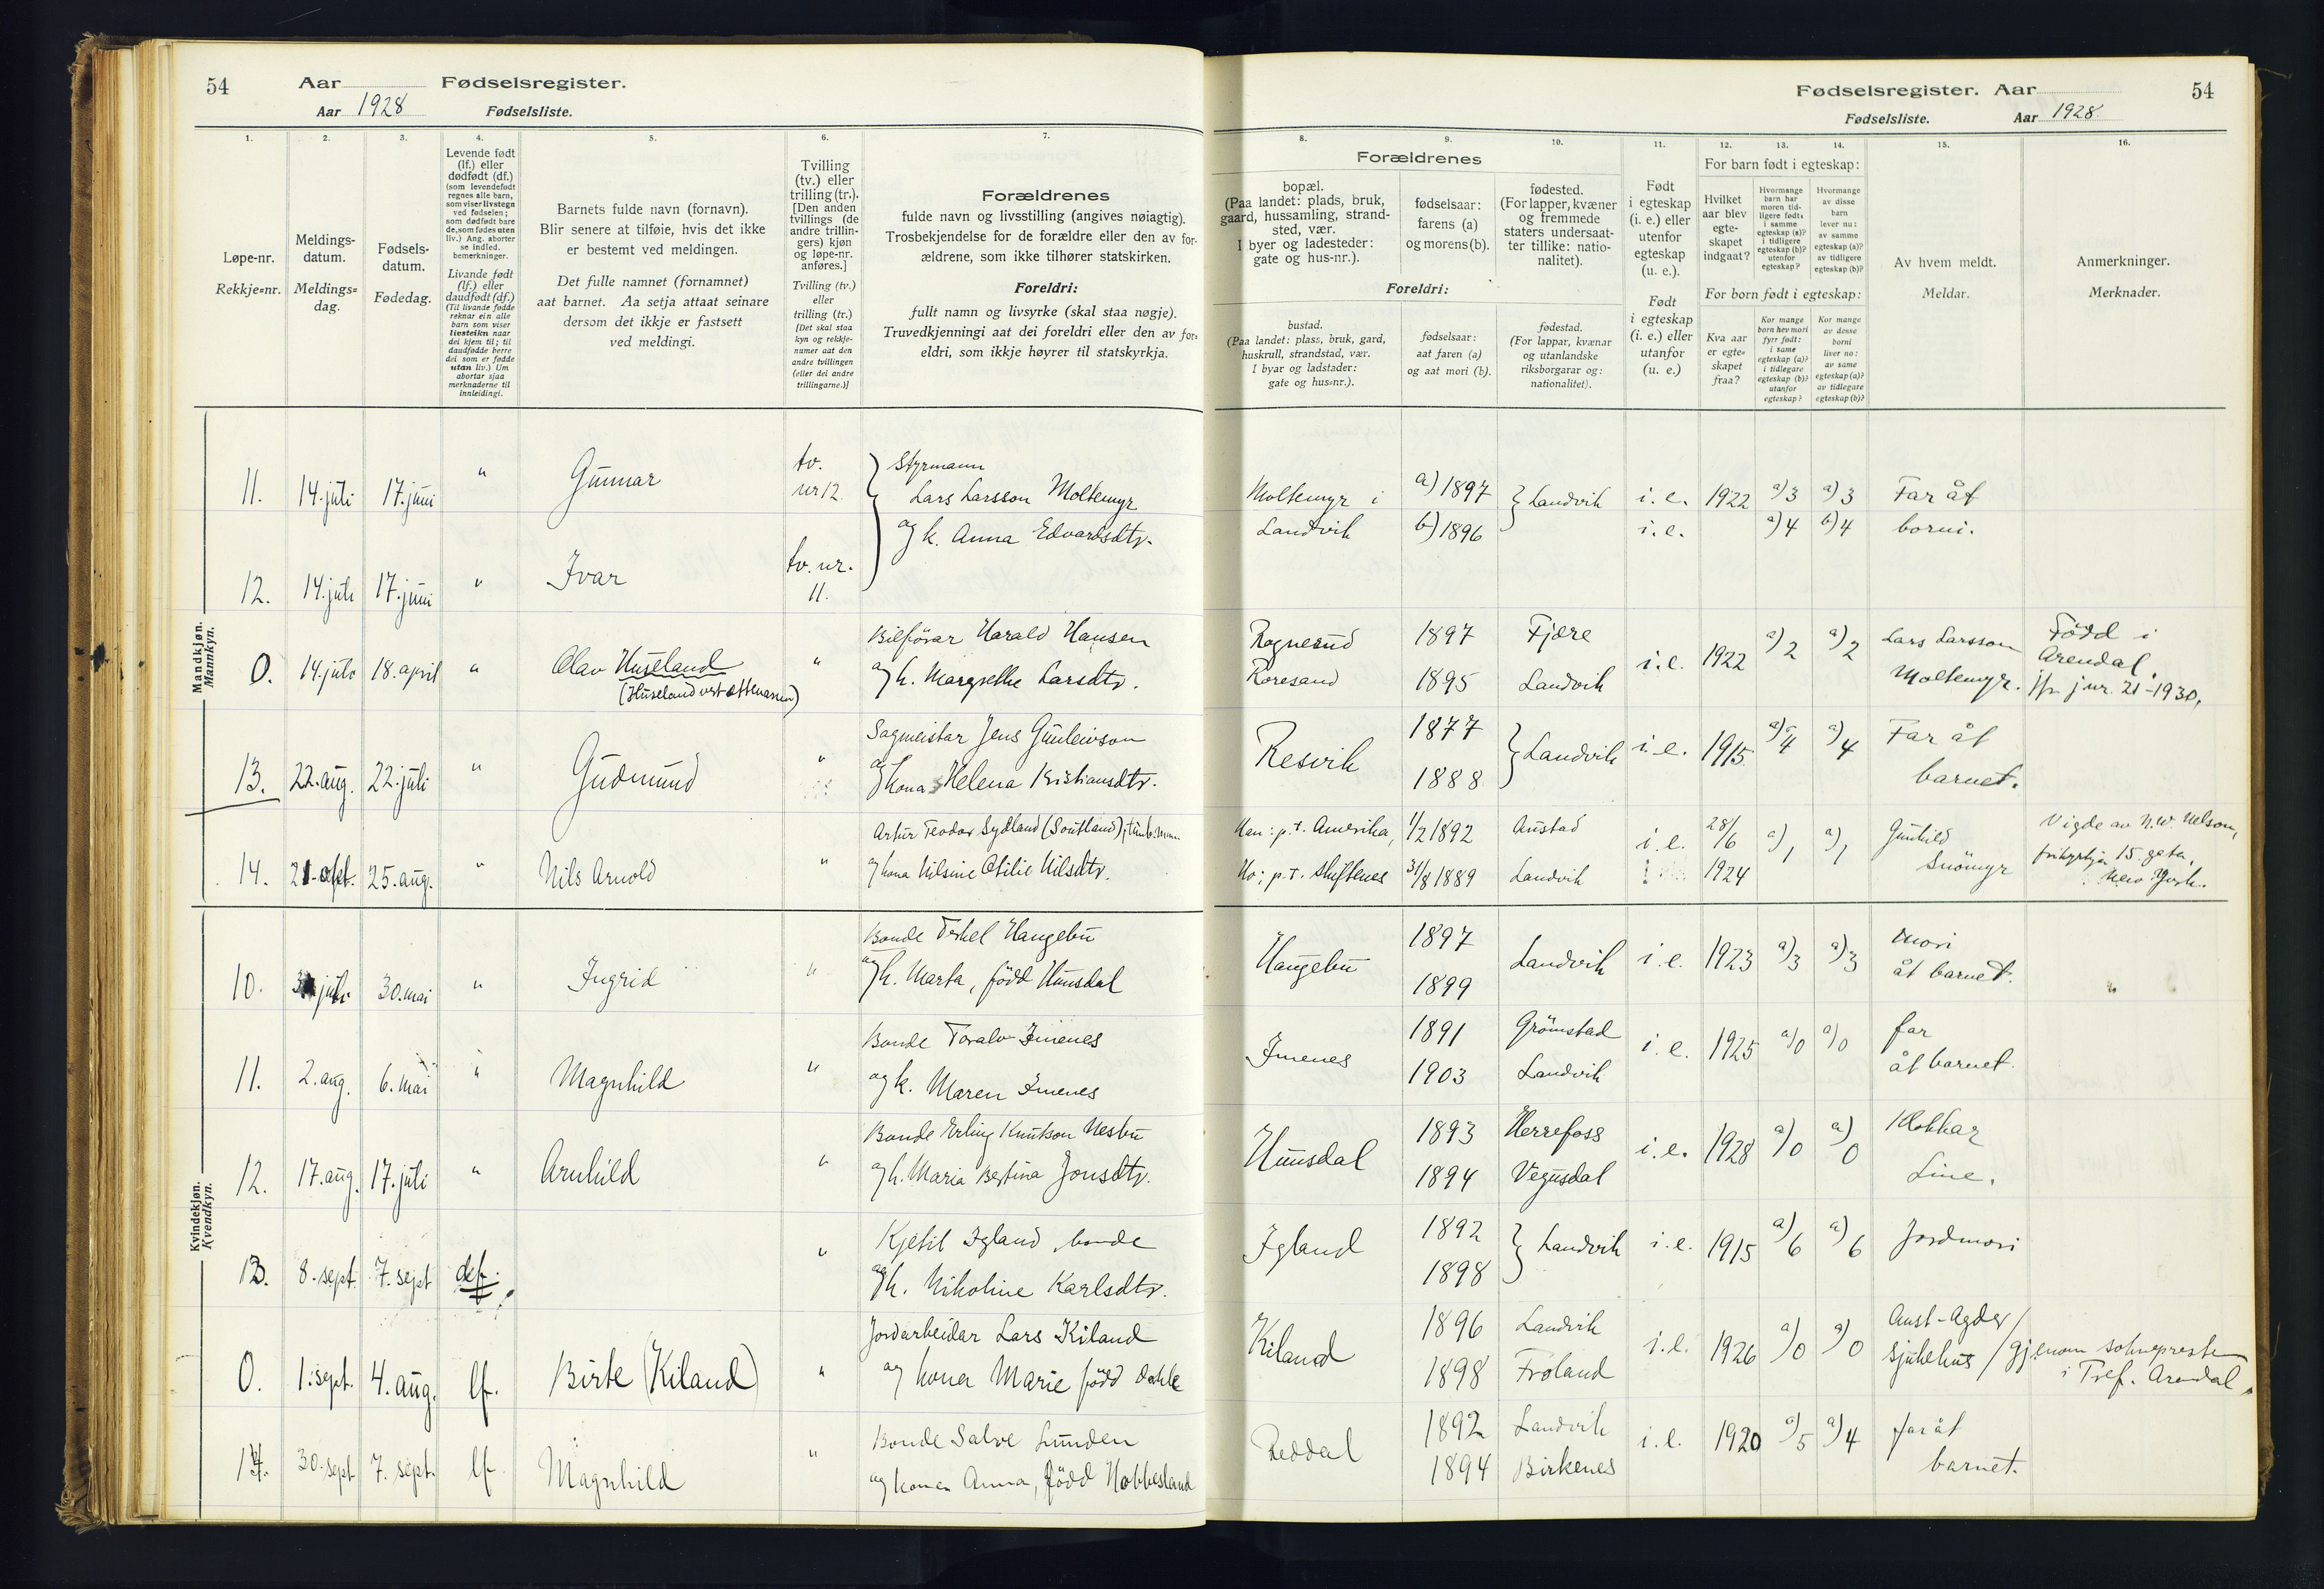 54
Aar
Fødselsregister.
Aar 1928
Fødselsliste.
1.
2.
3.
4.
5.
6.
7.
Løpe-nr.
Rekkje=nr.
Meldings-
datum.
Meldings=
dag.
Fødsels-
datum.
Fødedag.
Levende født
(lf.) eller
dødfødt (df.)
(som levendefødt
regnes alle barn,
som viser livstegn
ved fødselen;
som dødfødt bare
de, som fødes uten
liv.) Ang. aborter
se indled.
bemerkninger.
Livande født
(lf.) eller
daudfødt (df.)
(Til livande fødde
reknar ein alle
barn som viser
livsteikn naar
dei kjem til; til
daudfødde berre
dei som er fødde
utan liv.) Um
abortar sjaa
merknaderne til
innleidingi.
Barnets fulde navn (fornavn).
Blir senere at tilføie, hvis det ikke
er bestemt ved meldingen.
Det fulle namnet (fornamnet)
aat barnet. Aa setja attaat seinare
dersom det ikkje er fastsett
ved meldingi.
Tvilling
(tv.) eller
trilling (tr.).
[Den anden
tvillings (de
andre trillin-
gers) kjøn
og løpe-nr.
anføres.]
Tvilling (tv.)
eller
trilling (tr.)
[Det skal staa
kyn og rekkje-
numer aat den
andre tvillingen
(eller dei andre
trillingarne.)]
Forældrenes
fulde navn og livsstilling (angives nøiagtig).
Trosbekjendelse for de forældre eller den av for-
ældrene, som ikke tilhører statskirken.
Foreldri:
fullt namn og livsyrke (skal staa nøgje).
Truvedkjenningi aat dei foreldri eller den av for-
eldri, som ikkje høyrer til statskyrkja.
Mandkjøn.
Mannkyn.
11. 14. juli 17. juni " Gunnar tv. nr 12. Styrmann
Lars Larsson Moltemyr
og k. Anna Edvardsdtr.
12. 14. juli 17. juni " Ivar tv. nr. 11.
0. 14. juli 18. april " Olav Huseland "
(Huseland vert ættenavn)
Bilförar Harald Hansen
og k. Margrethe Larsdtr.
13. 22. aug. 22. juli " Gudmund "
Sagmeistar Jens Gunleivson
og kona Helena Kristiansdtr.
14. 21. sept. 25. aug. " Nils Arnold "
Artur Teodor Sydland (Southland),
og kona Nilsine Otilie Nilsdtr.
Kvindekjøn.
Kvendkyn.
10. juli 30. mai " Ingrid "
Bonde Terkel Haugebu
og k. Marta, född Hunsdal
11. 2. aug. 6. mai " Magnhild "
Bonde Toralv Imenes
og k. Maren Imenes
12. 17. aug. 17. juli " Arnhild "
Bonde Erling Knutson Nesbu
og k. Maria Bertina Jonsdtr.
13. 8. sept. 7. sept "
Kjetil Igland bonde
og k. Nikoline Karlsdtr.
0. 1. sept. 4. aug. lf. Birte (Kiland) "
Jordarbeidar Lars Kiland
og kona Marie född Dahle
14. 30. sept 7. sept. lf. Magnhild "
Bonde Salve Lunden
og kona Anna, född Hobbesland
Fødselsregister. Aar
54
Fødselsliste.
Aar 1928
8.
9.
10.
11.
12.
13.
14.
15.
16.
Forældrenes
bopæl.
(Paa landet: plads, bruk,
gaard, hussamling, strand-
sted, vær.
I byer og ladesteder:
gate og hus-nr.).
fødselsaar:
farens (a)
og morens (b).
fødested.
(For lapper, kvæner
og fremmede
staters undersaat-
ter tillike: natio-
nalitet).
Foreldri:
bustad.
(Paa landet: plass, bruk, gard,
huskrull, strandstad, vær.
I byar og ladstader:
gate og hus=nr.).
fødselsaar:
aat faren (a)
og aat mori (b).
fødestad.
(For lappar, kvænar
og utanlandske
riksborgarar og:
nationalitet).
Født
i egteskap
(i. e.) eller
utenfor
egteskap
(u. e.).
Født
i egteskap
(i. e.) eller
utanfor
(u. e.)
For barn født i egteskap:
Hvilket
aar blev
egte-
skapet
indgaat?
Hvormange
barn har
moren tid-
ligere født:
i samme
egteskap (a)?
i tidligere
egteskap (b)?
utenfor
egteskap?
Hvormange
av disse
barn
lever nu:
av samme
egteskap (a)?
av tidligere
egteskap (b)?
For born født i egteskap:
Kva aar
er egte=
skapet
fraa?
Kor mange
born hev mori
fyrr født:
i same
egteskap (a)?
i tidlegare
egteskap (b)?
utanfor
egteskap?
Kor mange
av desse
borni
liver no:
av same
egteskap (a)?
av tidlegare
egteskap (b)?
Av hvem meldt.
Meldar.
Anmerkninger.
Merknader.
Moltemyr i a) 1897 } Landvik i. e. 1922 a) 3 a) 3 Far åt
Landvik b) 1896 i. e. a) 4 b) 4 borni.
Rognesund 1897 Fjære i. e. 1922 a) 2 a) 2 Lars Larsson Född i
Roresand 1895 Landvik Moltemyr. Arendal.
jfr. j nr. 21-1930.
Resvik 1877 } Landvik i. e. 1915 a) 4 a) 4 Far åt
1888 barnet.
Han: p. t. Amerika, 1/2 1892 Austad i. e. 28/6 a) 1 a) 1 Gunhild Vigde av N.W. Nelson,
Ho: p. t. Skiftenes 31/8 1889 Landvik 1924 Snömyr frikyrkja 15. gata,
New York.
Haugebu 1897 Landvik i. e. 1923 a) 3 a) 3 Mori
1899 åt barnet.
Imenes 1891 Grömstad i. e. 1925 a) 0 a) 0 far
1903 Landvik åt barnet.
Hunsdal 1893 Herrefoss i. e. 1928 a) 0 a) 0 Klokkar
1894 Vegusdal Line.
Igland 1892 } Landvik i. e. 1915 a) 6 a) 6 Jordmori
1898
Kiland 1896 Landvik i. e. 1926 a) 0 a) 0 Aust-Agder
1898 Froland sjukehus / gjenom soknepresten
i Tref. Arendal.
Reddal 1892 Landvik i. e. 1920 a) 5 a) 4 far åt
1894 Birkenes barnet.